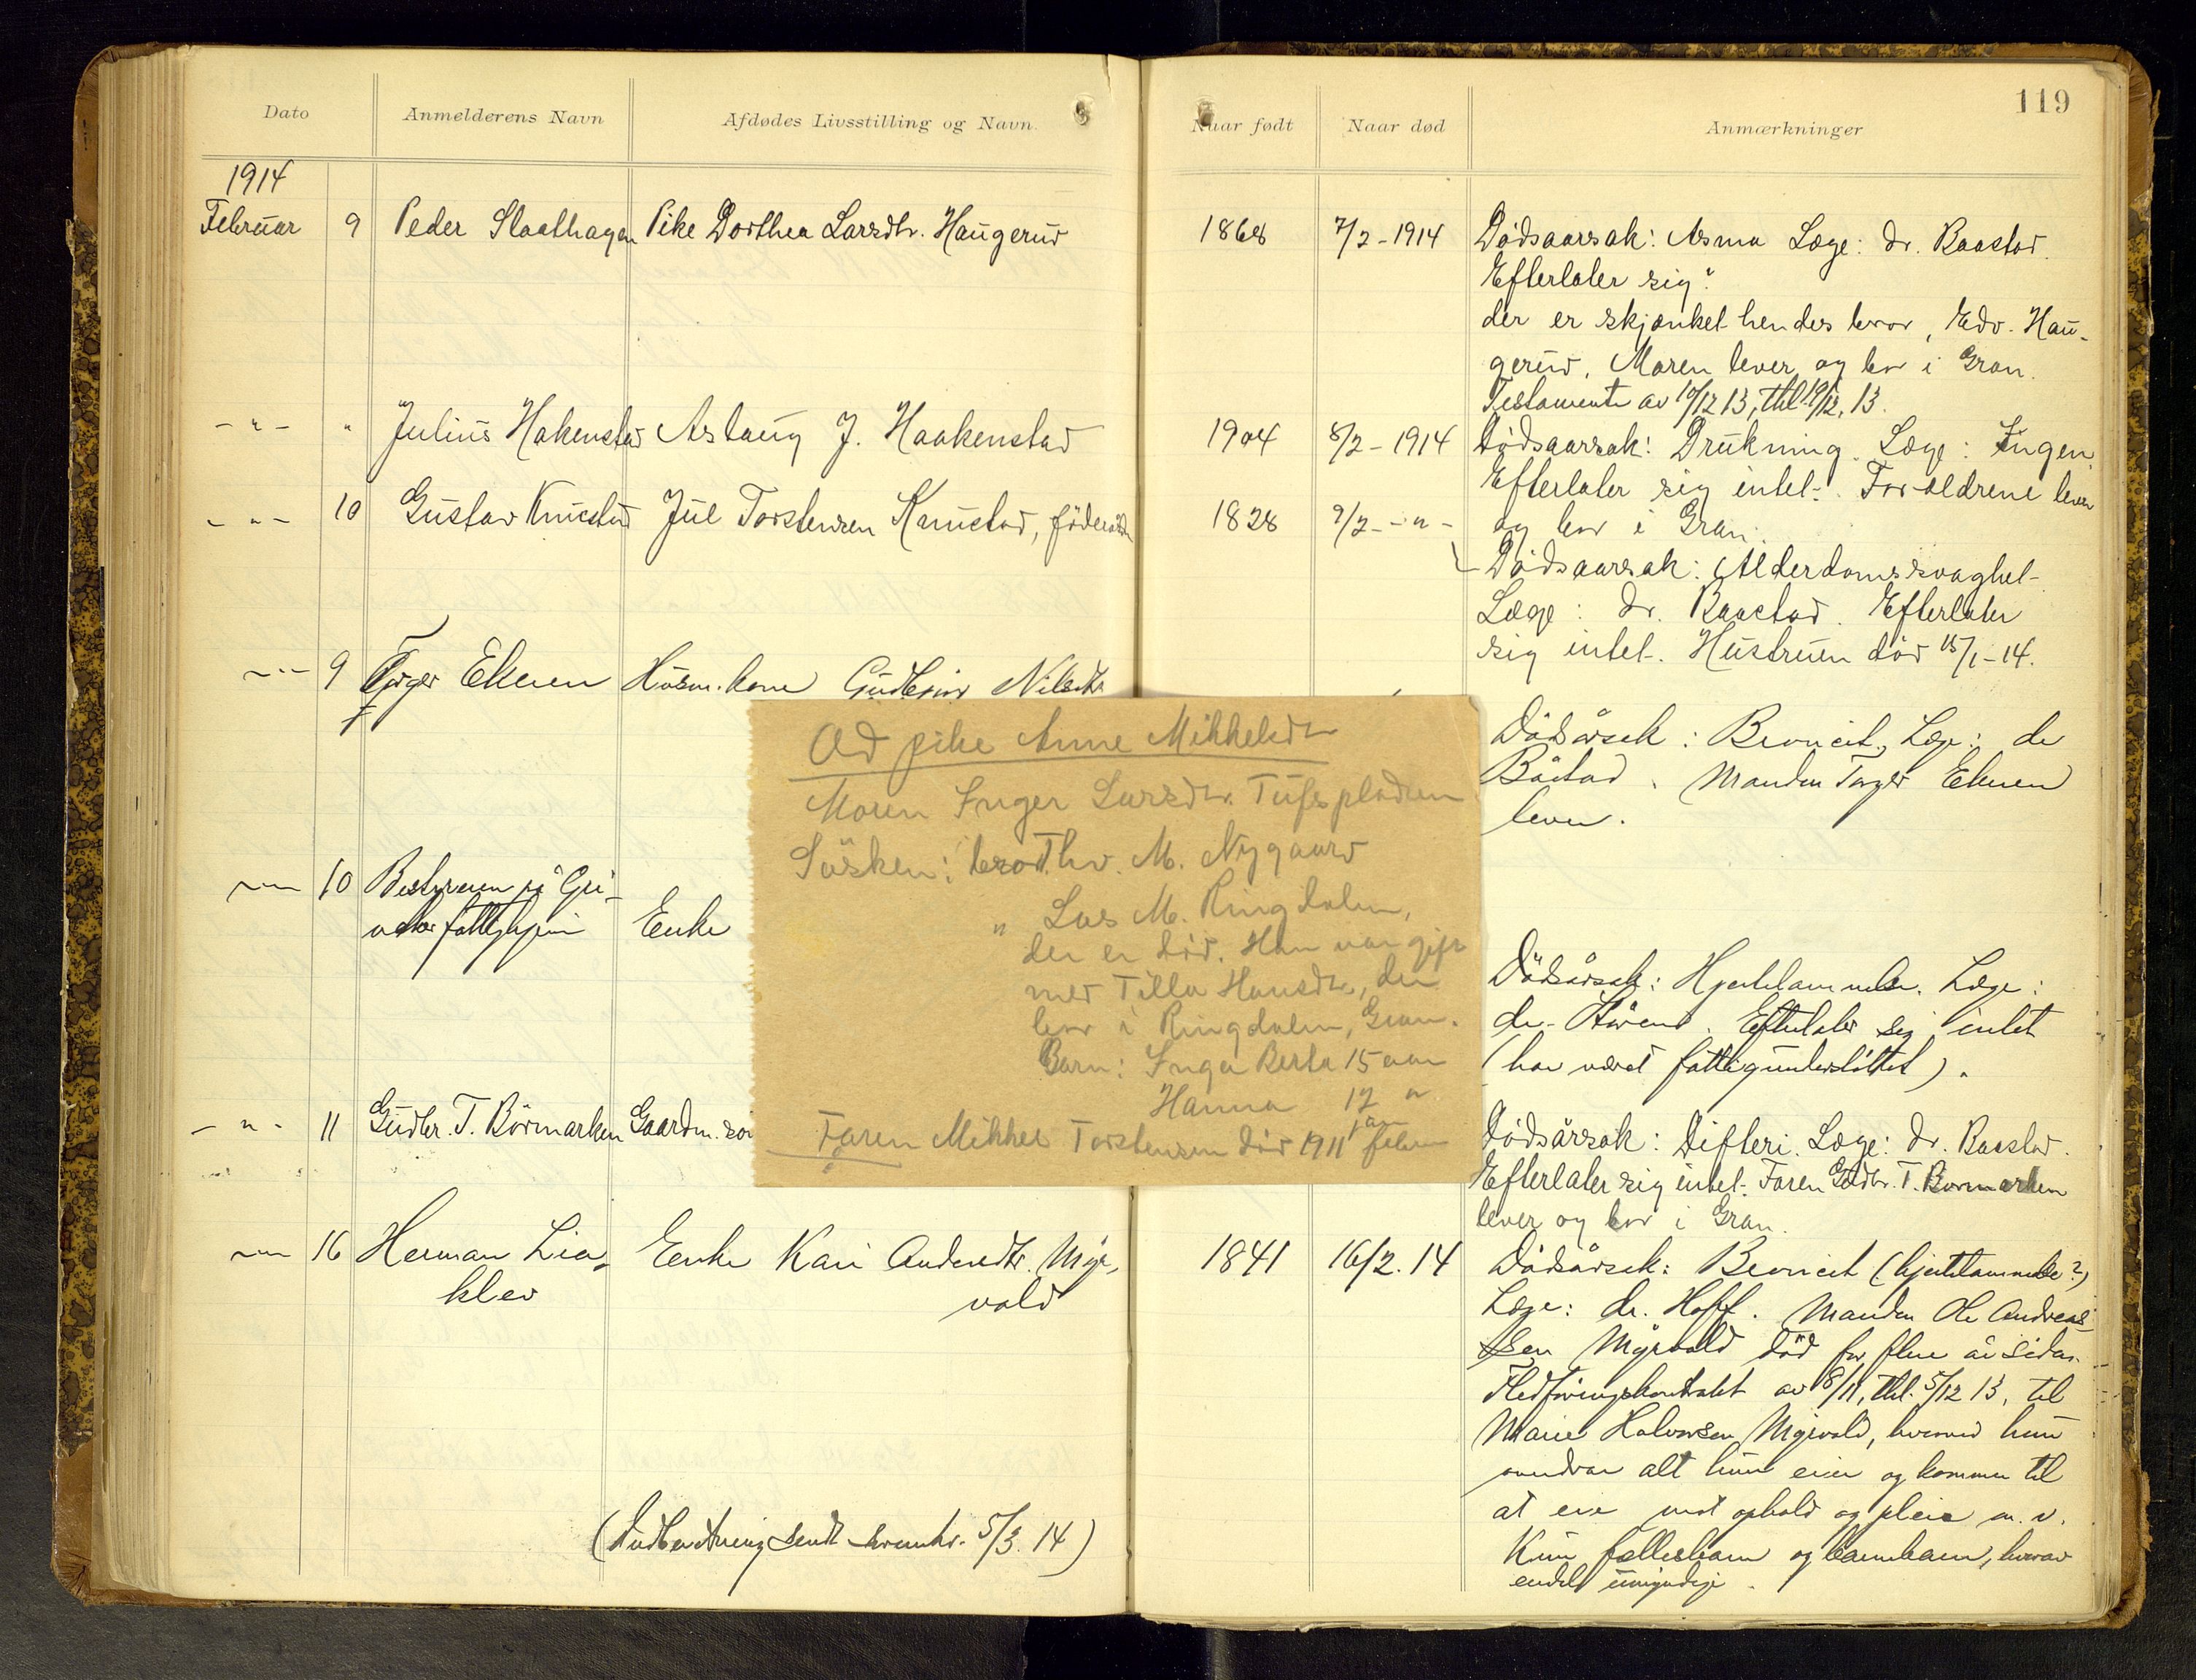 119
Dato Anmelderens Navn Afdødes Livsstilling og Navn. Naar født Naar død Anmærkninger
1914
Februar 9 Peder Staalhagen Pike Dorthea Larsdtr. Haugerud 1868 7/2-1914 Dødsaarsak: Asma Læge: Dr. Baastad.
Efterlater sig:
der er skjænket hendes bror, Edv. Hau-
gerud. Moren lever og bor i Gran.
Testamente av 10/12 13, thl. 19/12, 13.
-"- " Julius Hakenstad Aslaug J. Haakenstad 1904 8/2-1914 Dødsaarsak: Drukning. Læge: Ingen.
Efterlater sig intet. Forældrene lever
og bor i Gran.
-"- 10 Gustav Knustad Jul Torstensen Knustad, føderåd 1828 9/2--"-
Dødsaarsak: Alderdomssvaghet
Læge: Dr. Baastad. Efterlater
sig intet. Hustruen død 15/1-14.
-"- 9 Torger Ekeren Husm. kone Gudbjør Nilsdtr.
Dödsårsak: Broncit, Læge: dr
Båstad. Manden Torger Ekeren
lever.
-"- 10 Bestyreren på Gri-
netter fattighjem Enke
Dödsårsak: Hjertelammelse. Læge:
dr. Hørend. Efterlater sig intet
(har været fattigunderstöttet).
-"- 11 Gudbr. T. Börmarken Gaardm. søn
Dødsårsak: Difteri. Læge: Dr. Baastad.
Efterlater sig intet. Faren Gudbr. T. Bormarken
lever og bor i Gran.
-"- 16 Herman Lia-
klev
Enke Kari Andersdtr. Myr-
vold
1841 16/2.14
Dödsårsak: Broncit (hjertelammelse?)
Læge: dr. Hoff. Manden Ole Andreas-
sen Myrvold död for flere år siden.
Fledföringskontrakt av 8/11, thl. 5/12 13, til
Marie Halvorsen Myrvold, hvorved hun
overdrar alt hun eier og kommer til
at eie mot ophold og pleie m.v.
Kun fællesbarn og barnebarn, hvorav
endel umyndige.
(Indberetning sendt 5/3. 14)
Ad pike Anne Mikkelsdtr
Moren Inger Larsdtr. Tufspladsen
Søsken: bror Thv. M. Nygaard
" Lars M. Ringdalen,
der er død. Han var gift
med Tilla Hansdtr, der
bor i Ringdalen, Gran.
Barn: Inga Berta 15 aar
Hanna 12 "
Faren Mikkel Torstensen død 1911